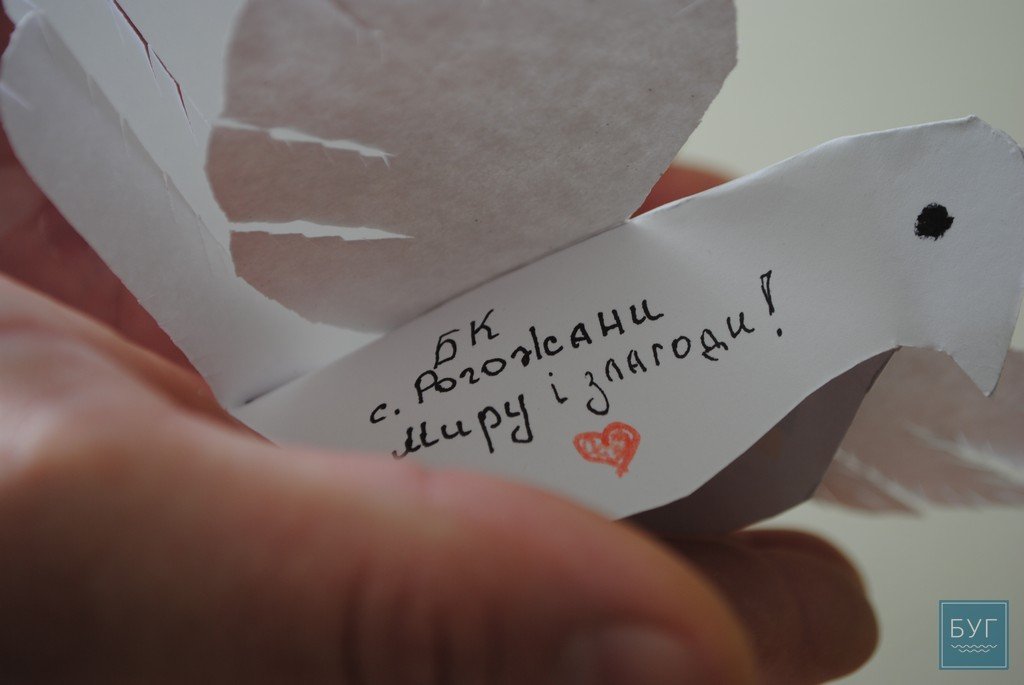 БК
с. Рогожани
миру і злагоди!
БУГ